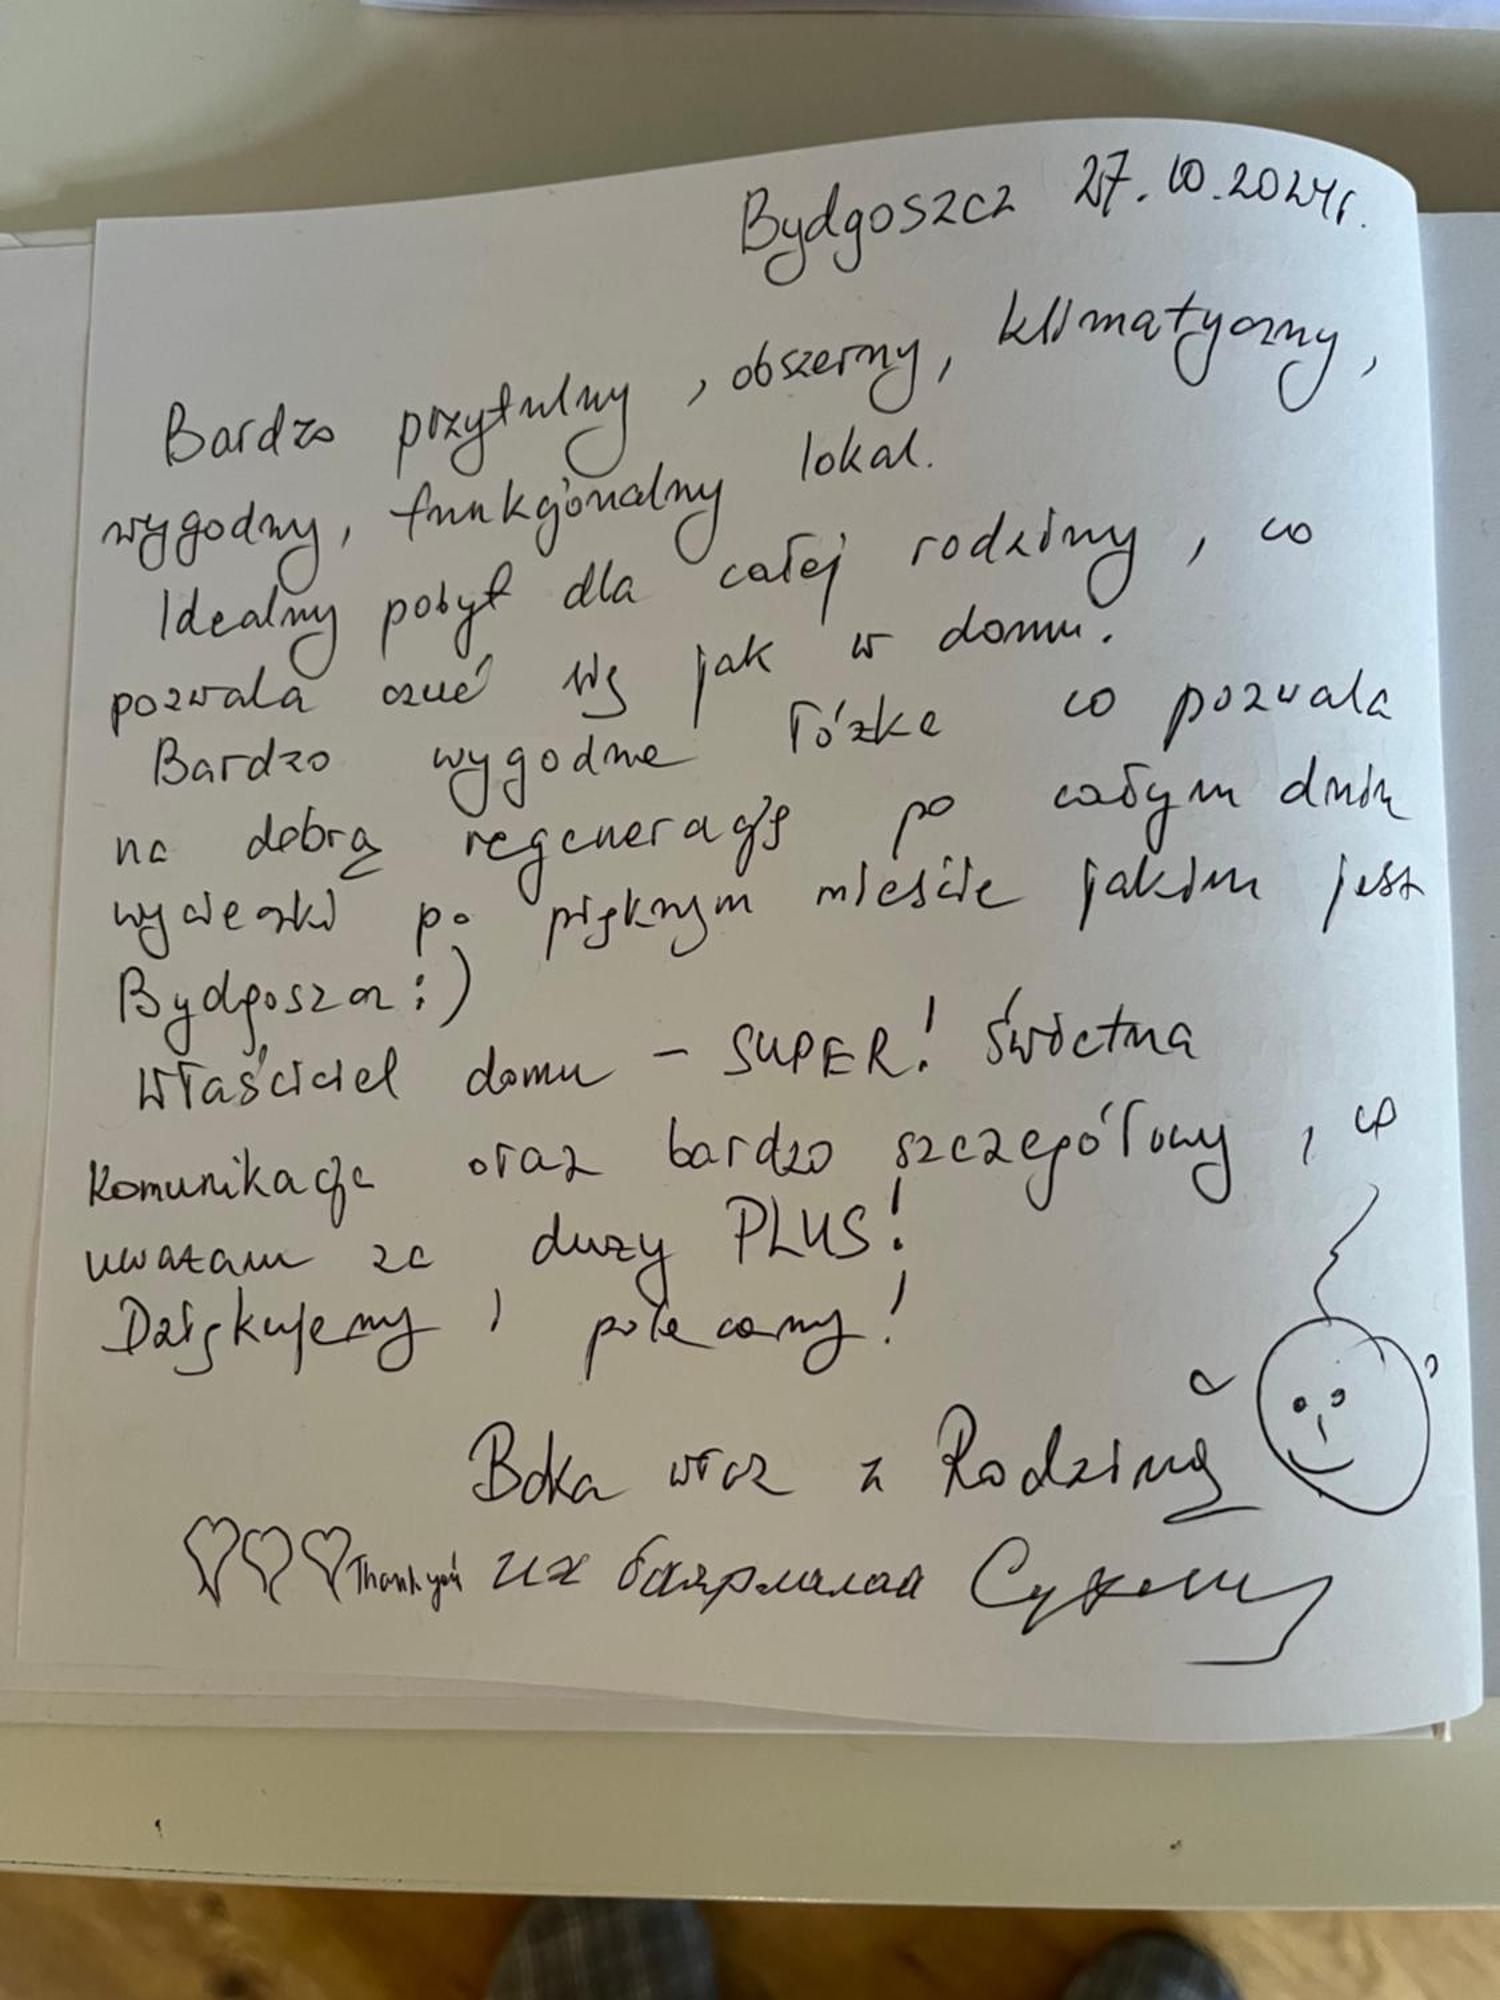 Bydgoszcz 27.10.2024r.
Bardzo przytulny, obszerny, klimatyczny,
wygodny, funkcjonalny lokal.
Idealny pobyt dla całej rodziny, co
pozwala czuć się jak w domu.
Bardzo wygodne łóżka co pozwala
na dobrą regenerację po całym dniu
wycieczki po pięknym mieście jakim jest
Bydgoszcz :)
Właściciel domu – SUPER! Świetna
komunikacja oraz bardzo szczegółowy, co
uważam za duży PLUS!
Dziękujemy i polecamy!
wraz z Rodziną
Thank you